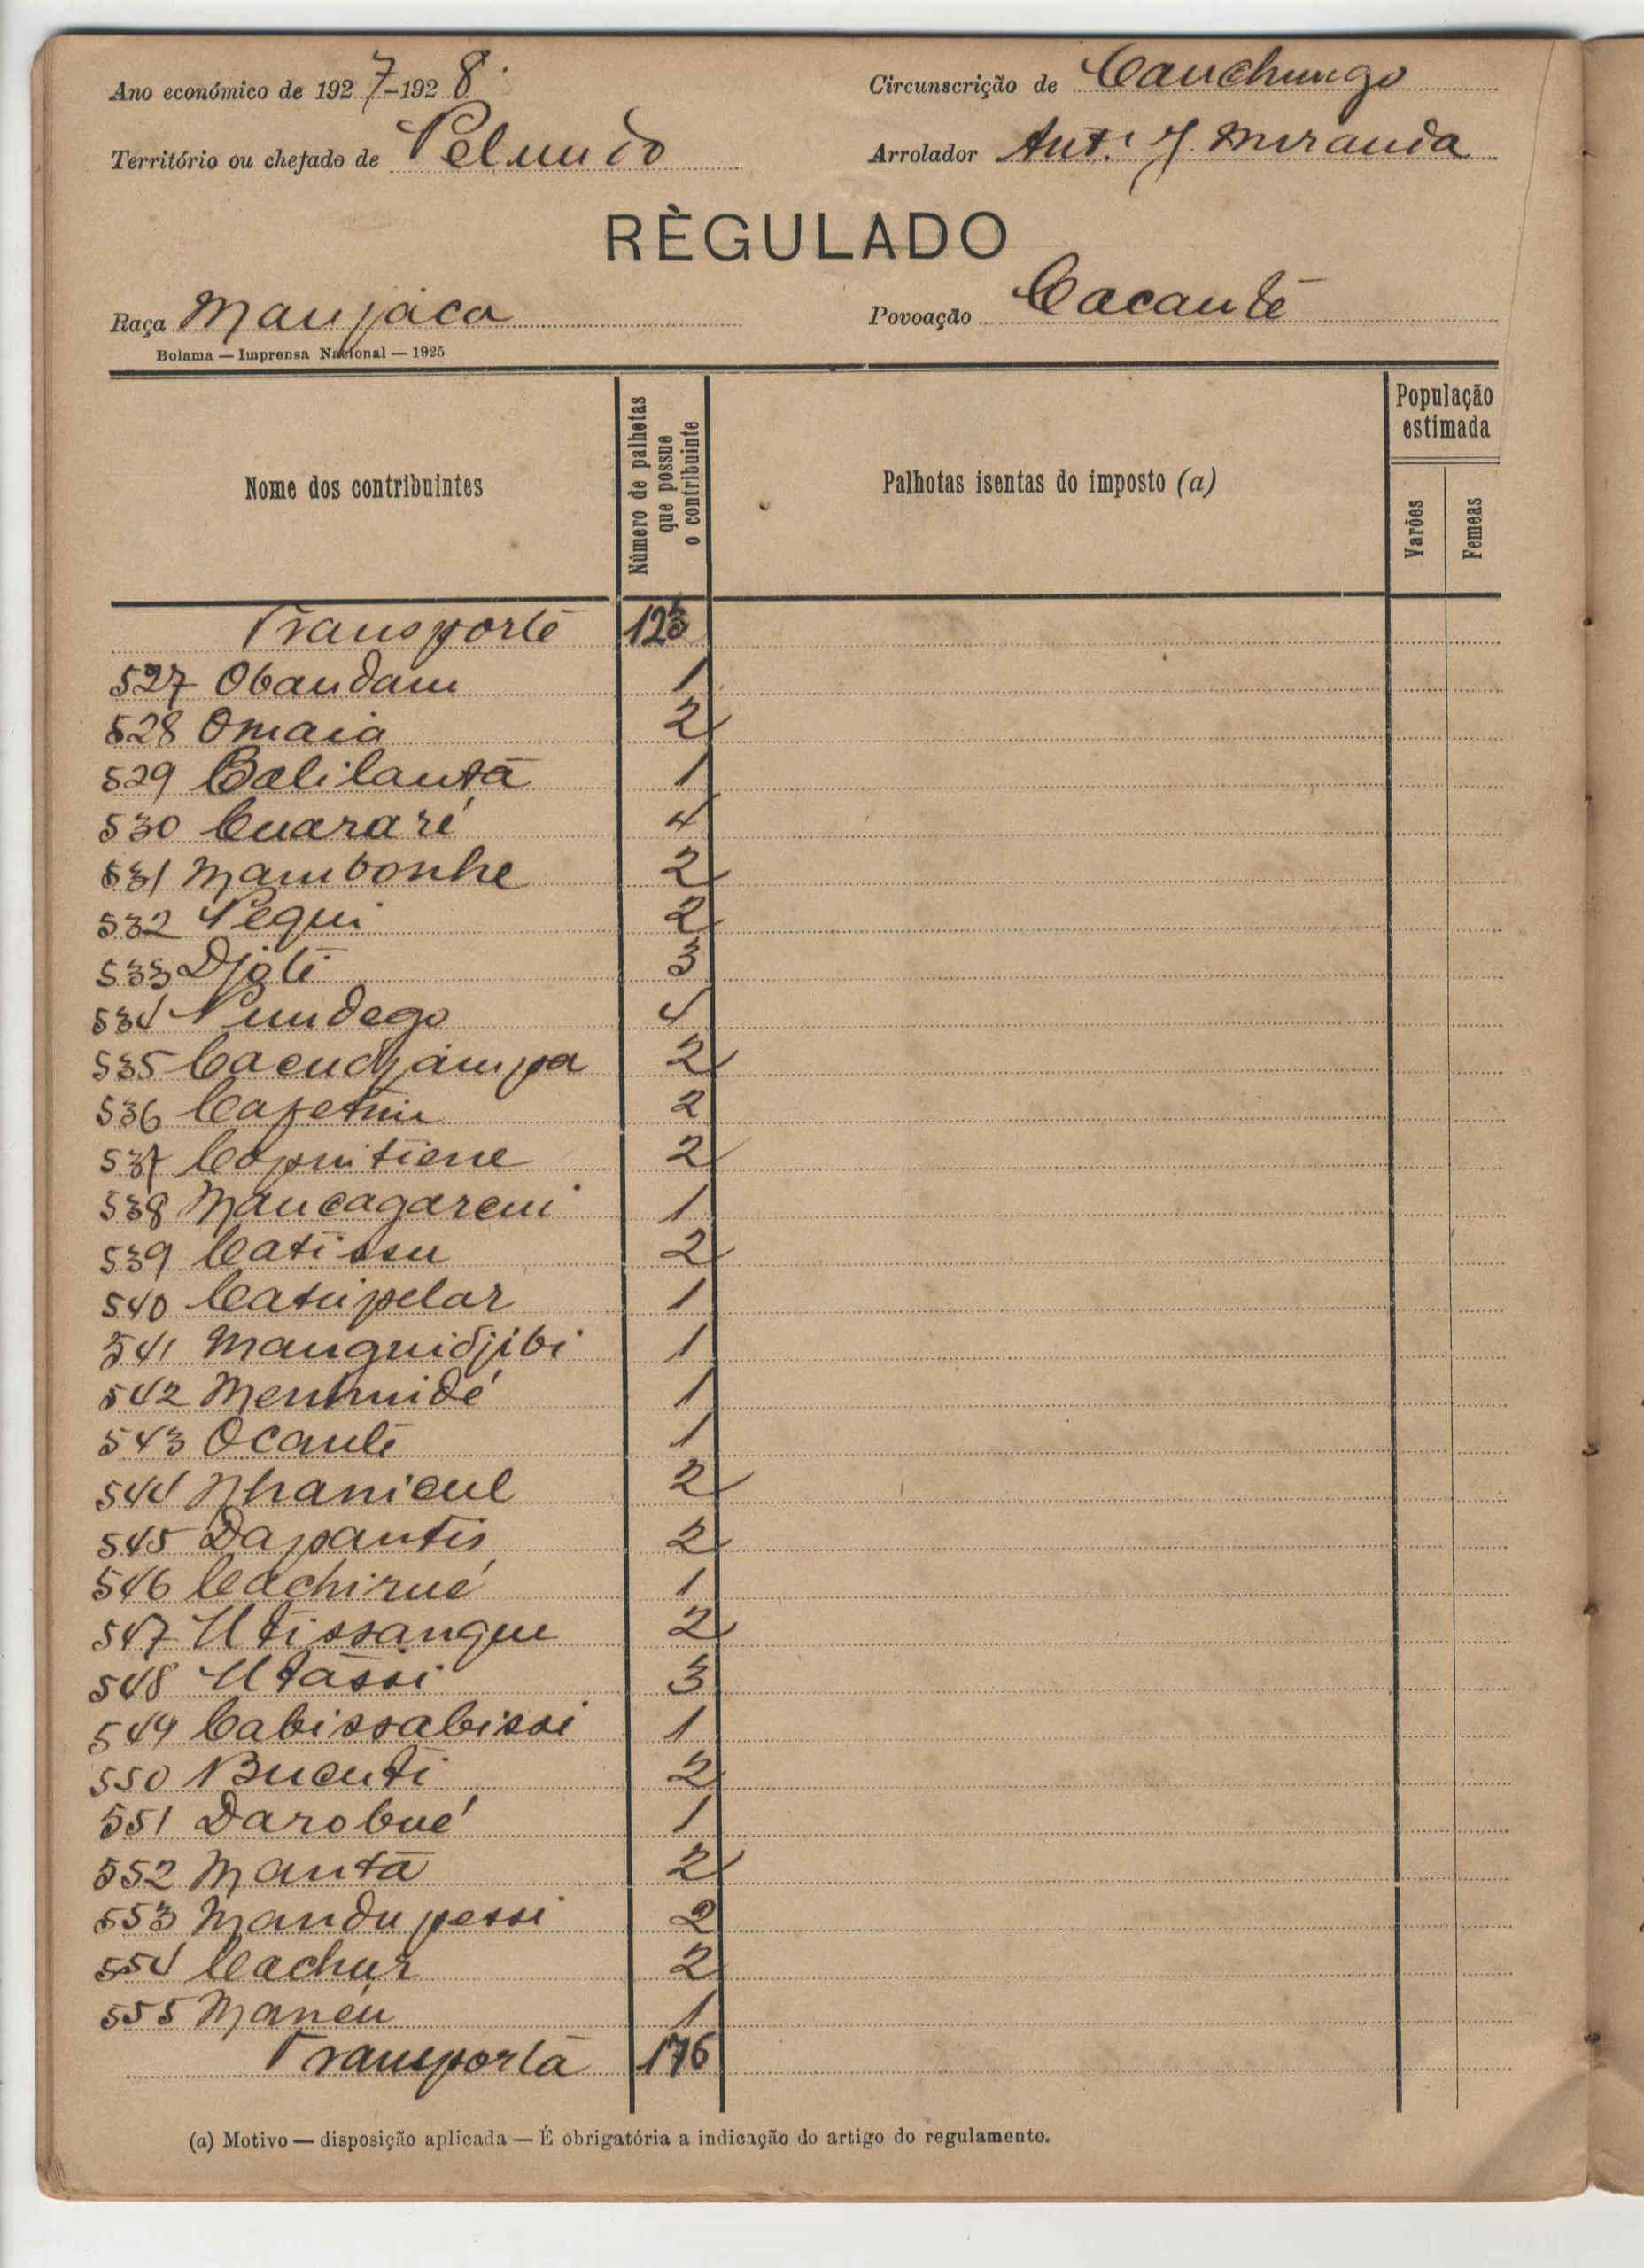 Ano económico de 1927-1928
Circunscrição de Canchungo
Território ou chefado de Pelundo
Arrolador Antº J. Miranda
RÈGULADO
Raça Manjaca
Povoação Cacanté
Bolama — Imprensa Nacional — 1925
Nome dos contribuintes
Número de palhotas que possue o contribuinte
Palhotas isentas do imposto (a)
População estimada
Varões
Femeas
Transporte 123
527 Obandam 1
528 Omaia 2
529 Balilantã 1
530 Cuararé 4
531 Mambonhe 2
532 Pequi 2
533 Djoté 3
534 Pundego 4
535 2
536 2
537 2
538 Mancagareni 1
539 Catissu 2
540 Catupelar 1
541 Manguidjibi 1
542 1
543 Ocanté 1
544 Nhanicul 2
545 Dapantis 2
546 Cachirué 1
547 Utissangue 2
548 Utassi 3
549 Cabissabissi 1
550 Bucuti 2
551 Darobué 1
552 Mantã 2
553 Mandu pessi 2
554 Cachur 2
555 Manéu 1
Transporta 176
(a) Motivo — disposição aplicada — É obrigatória a indicação do artigo do regulamento.